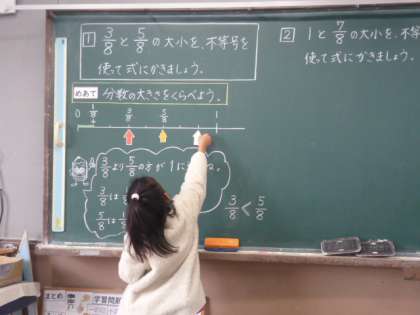 1 3/8と5/8の大小を、不等号を
使って式にかきましょう。
めあて 分数の大きさをくらべよう。
0 1/8 3/8 5/8 1
3/8より5/8の方が1に
3/8は
5/8は
3/8 < 5/8
2 1と7/8の大小を、不等
使って式にかきましょう。
まとめ
学習問題